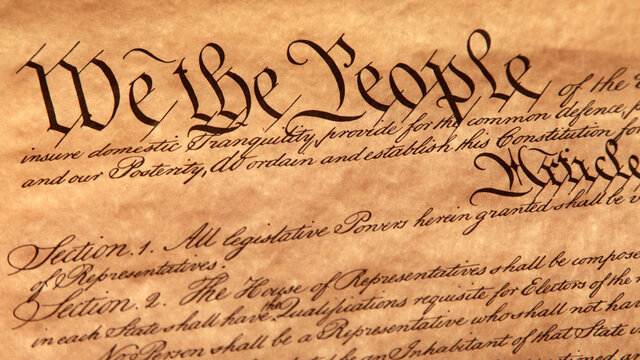 We the People of the
insure domestic Tranquility, provide for the common defence,
and our Posterity, do ordain and establish this Constitution for
Article
Section. 1. All legislative Powers herein granted shall be
of Representatives.
Section. 2. The House of Representatives shall be compose
in each State shall have the Qualifications requisite for Electors of the
No Person shall be a Representative who shall not ha
an Inhabitant of that State